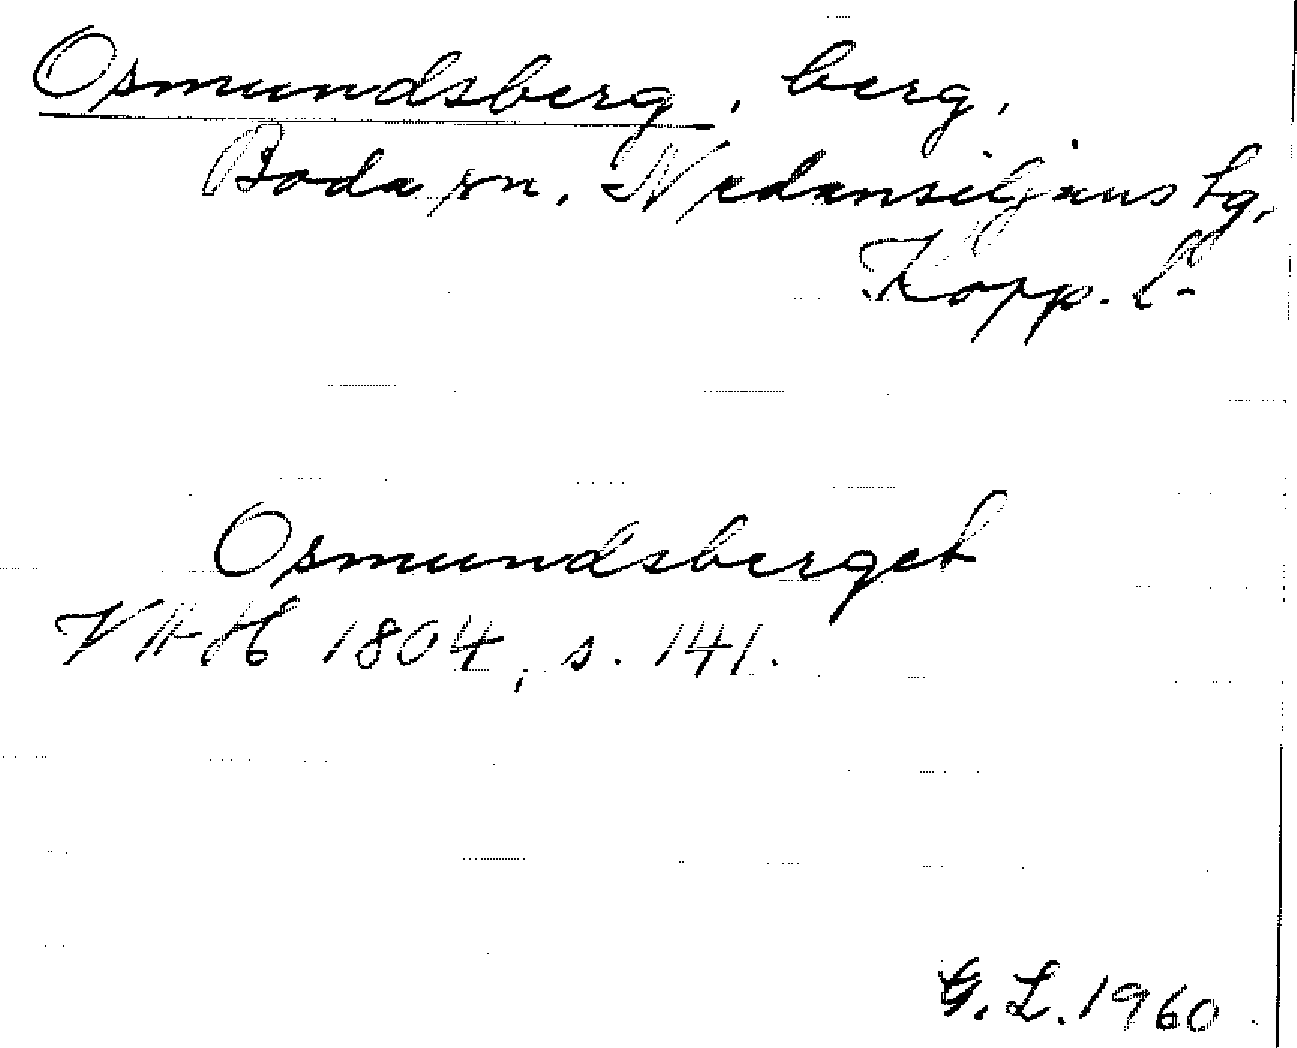 Osmundsberg, berg,
Boda sn, Nedansiljans tg,
Kopp. l.
Osmundsberget
VAH 1804, s. 141.
G. L. 1960